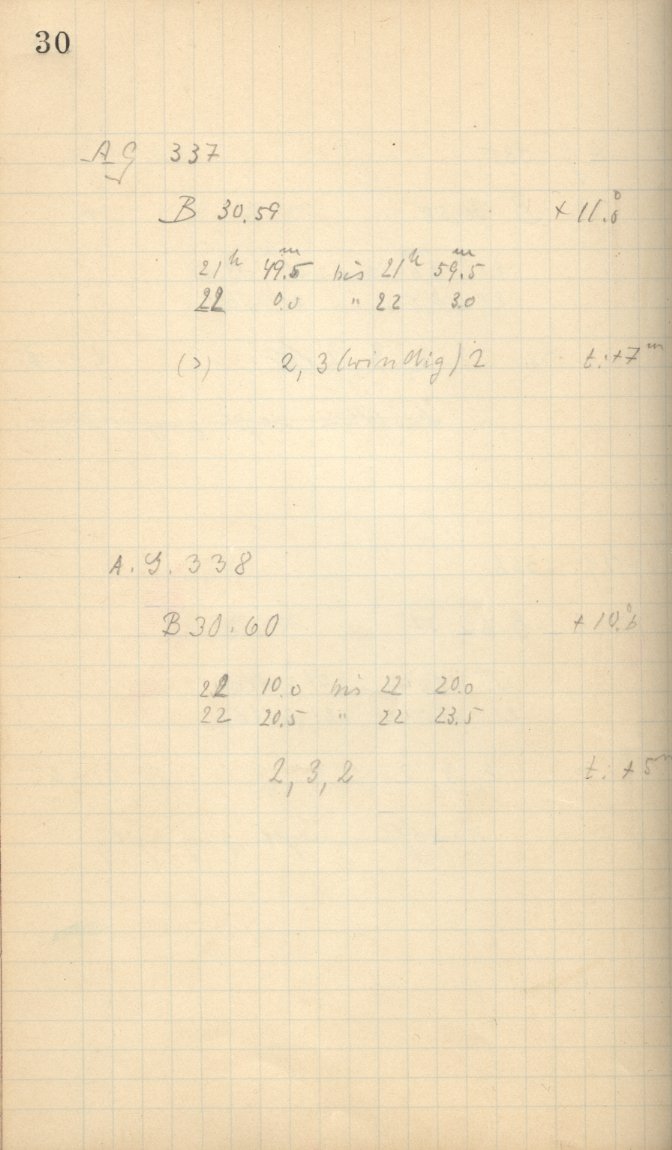 30
AG 337
B 30.59 + 11.°0
21h 49.m5 bis 21h 59.m5
22 0.0 " 22 3.0
(>) 2, 3 (windig) 2 t: +7m
A.G. 338
B 30.60 + 10.°6
22 10.0 bis 22 20.0
22 20.5 " 22 23.5
2, 3, 2 t: +5m